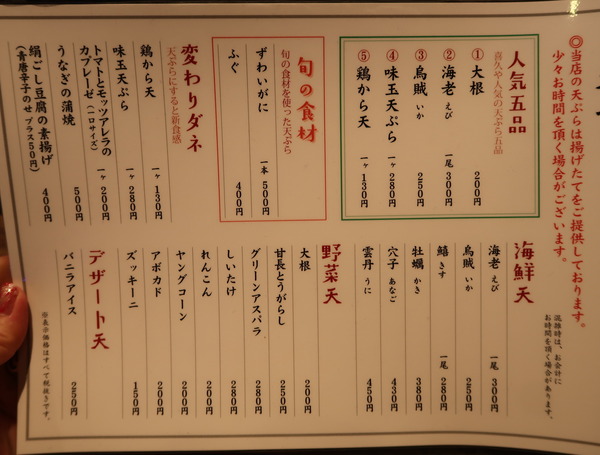 ◎当店の天ぷらは揚げたてをご提供しております。
少々お時間を頂く場合がございます。
人気五品
喜久や人気の天ぷら五品
① 大根 200円
② 海老 えび 一尾 300円
③ 烏賊 いか 250円
④ 味玉天ぷら 一ヶ 280円
⑤ 鶏から天 一ヶ 130円
旬の食材
旬の食材を使った天ぷら
ずわいがに 一本 500円
ふぐ 400円
変わりダネ
天ぷらにすると新食感
鶏から天 一ヶ 130円
味玉天ぷら 一ヶ 280円
トマトとモッツアレラの
カプレーゼ(一口サイズ) 一ヶ 200円
うなぎの蒲焼 500円
絹ごし豆腐の素揚げ 400円
(青唐辛子のせ プラス50円)
混雑時は、お会計に
お時間を頂く場合があります。
海鮮天
海老 えび 一尾 300円
烏賊 いか 250円
鱚 きす 一尾 280円
牡蠣 かき 380円
穴子 あなご 430円
雲丹 うに 450円
野菜天
大根 200円
甘長とうがらし 250円
グリーンアスパラ 280円
しいたけ 280円
れんこん 200円
ヤングコーン 200円
アボカド 200円
ズッキーニ 150円
デザート天
バニラアイス 250円
※表示価格はすべて税抜きです。